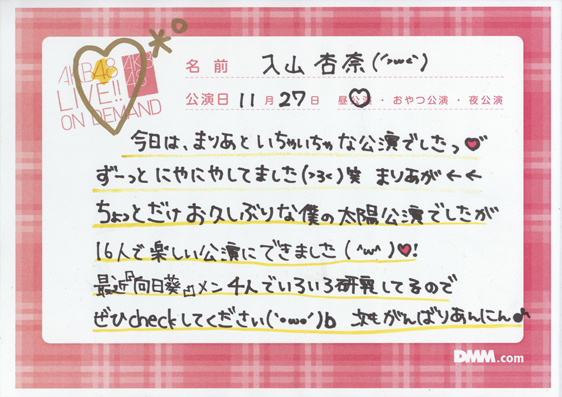 AKB48
LIVE!!
ON DEMAND
AKB
48
名前 入山杏奈(´>ω<`)
公演日 11月27日 昼公演・おやつ公演・夜公演
今日は、まりあといちゃいちゃな公演でしたっ♥
ずーっとにやにやしてました(>3<)笑 まりあが←←
ちょっとだけお久しぶりな僕の太陽公演でしたが
16人で楽しい公演にできました(^ω^)♥!
最近『向日葵』メン4人でいろいろ研究してるので
ぜひcheckしてください(`・ω・´)b 次もがんばりあんにん♪
DMM.com